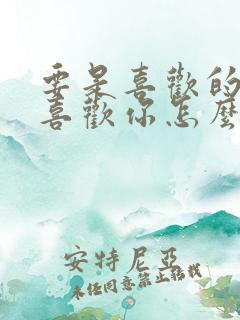 要是喜歡的
喜歡你怎麼
安特尼亞
未任同意禁止轉載